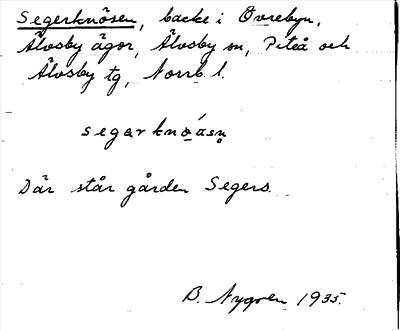 Segerknösen, backe i Övrebyn,
Älvsby ägor, Älvsby sn, Piteå och
Älvsby tg, Norrb. l.
segərknǫ́asn̥
Där står gården Segers.
B. Nygren 1935.